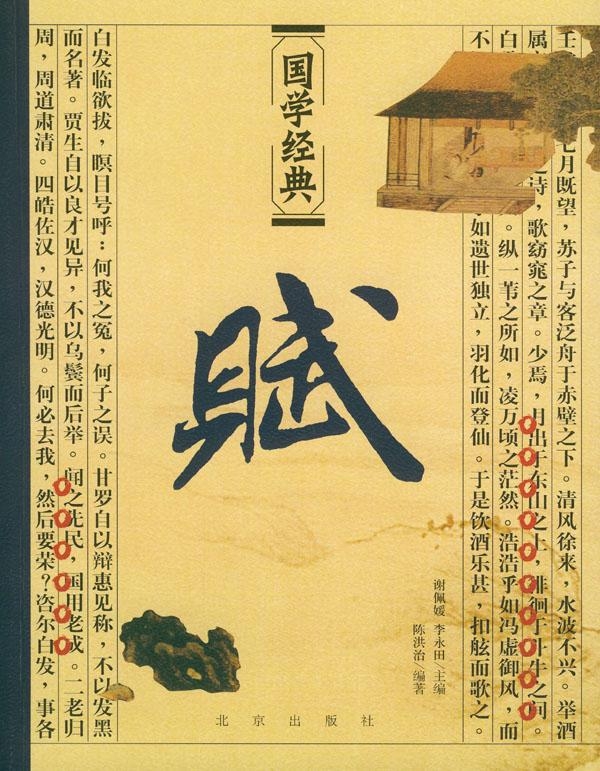 壬 七月既望，苏子与客泛舟于赤壁之下。清风徐来，水波不兴。举酒
属 之诗，歌窈窕之章。少焉，月出于东山之上，徘徊于斗牛之间。
白 。纵一苇之所如，凌万顷之茫然。浩浩乎如冯虚御风，而
不 如遗世独立，羽化而登仙。于是饮酒乐甚，扣舷而歌之。
国学经典
賦
谢佩媛 李永田/主编
陈洪治/编著
白发临欲拔，瞑目号呼：何我之冤，何子之误。甘罗自以辩惠见称，不以发黑
而名著。贾生自以良才见异，不以乌鬓而后举。闻之先民，国用老成。二老归
周，周道肃清。四皓佐汉，汉德光明。何必去我，然后要荣？咨尔白发，事各
北京出版社